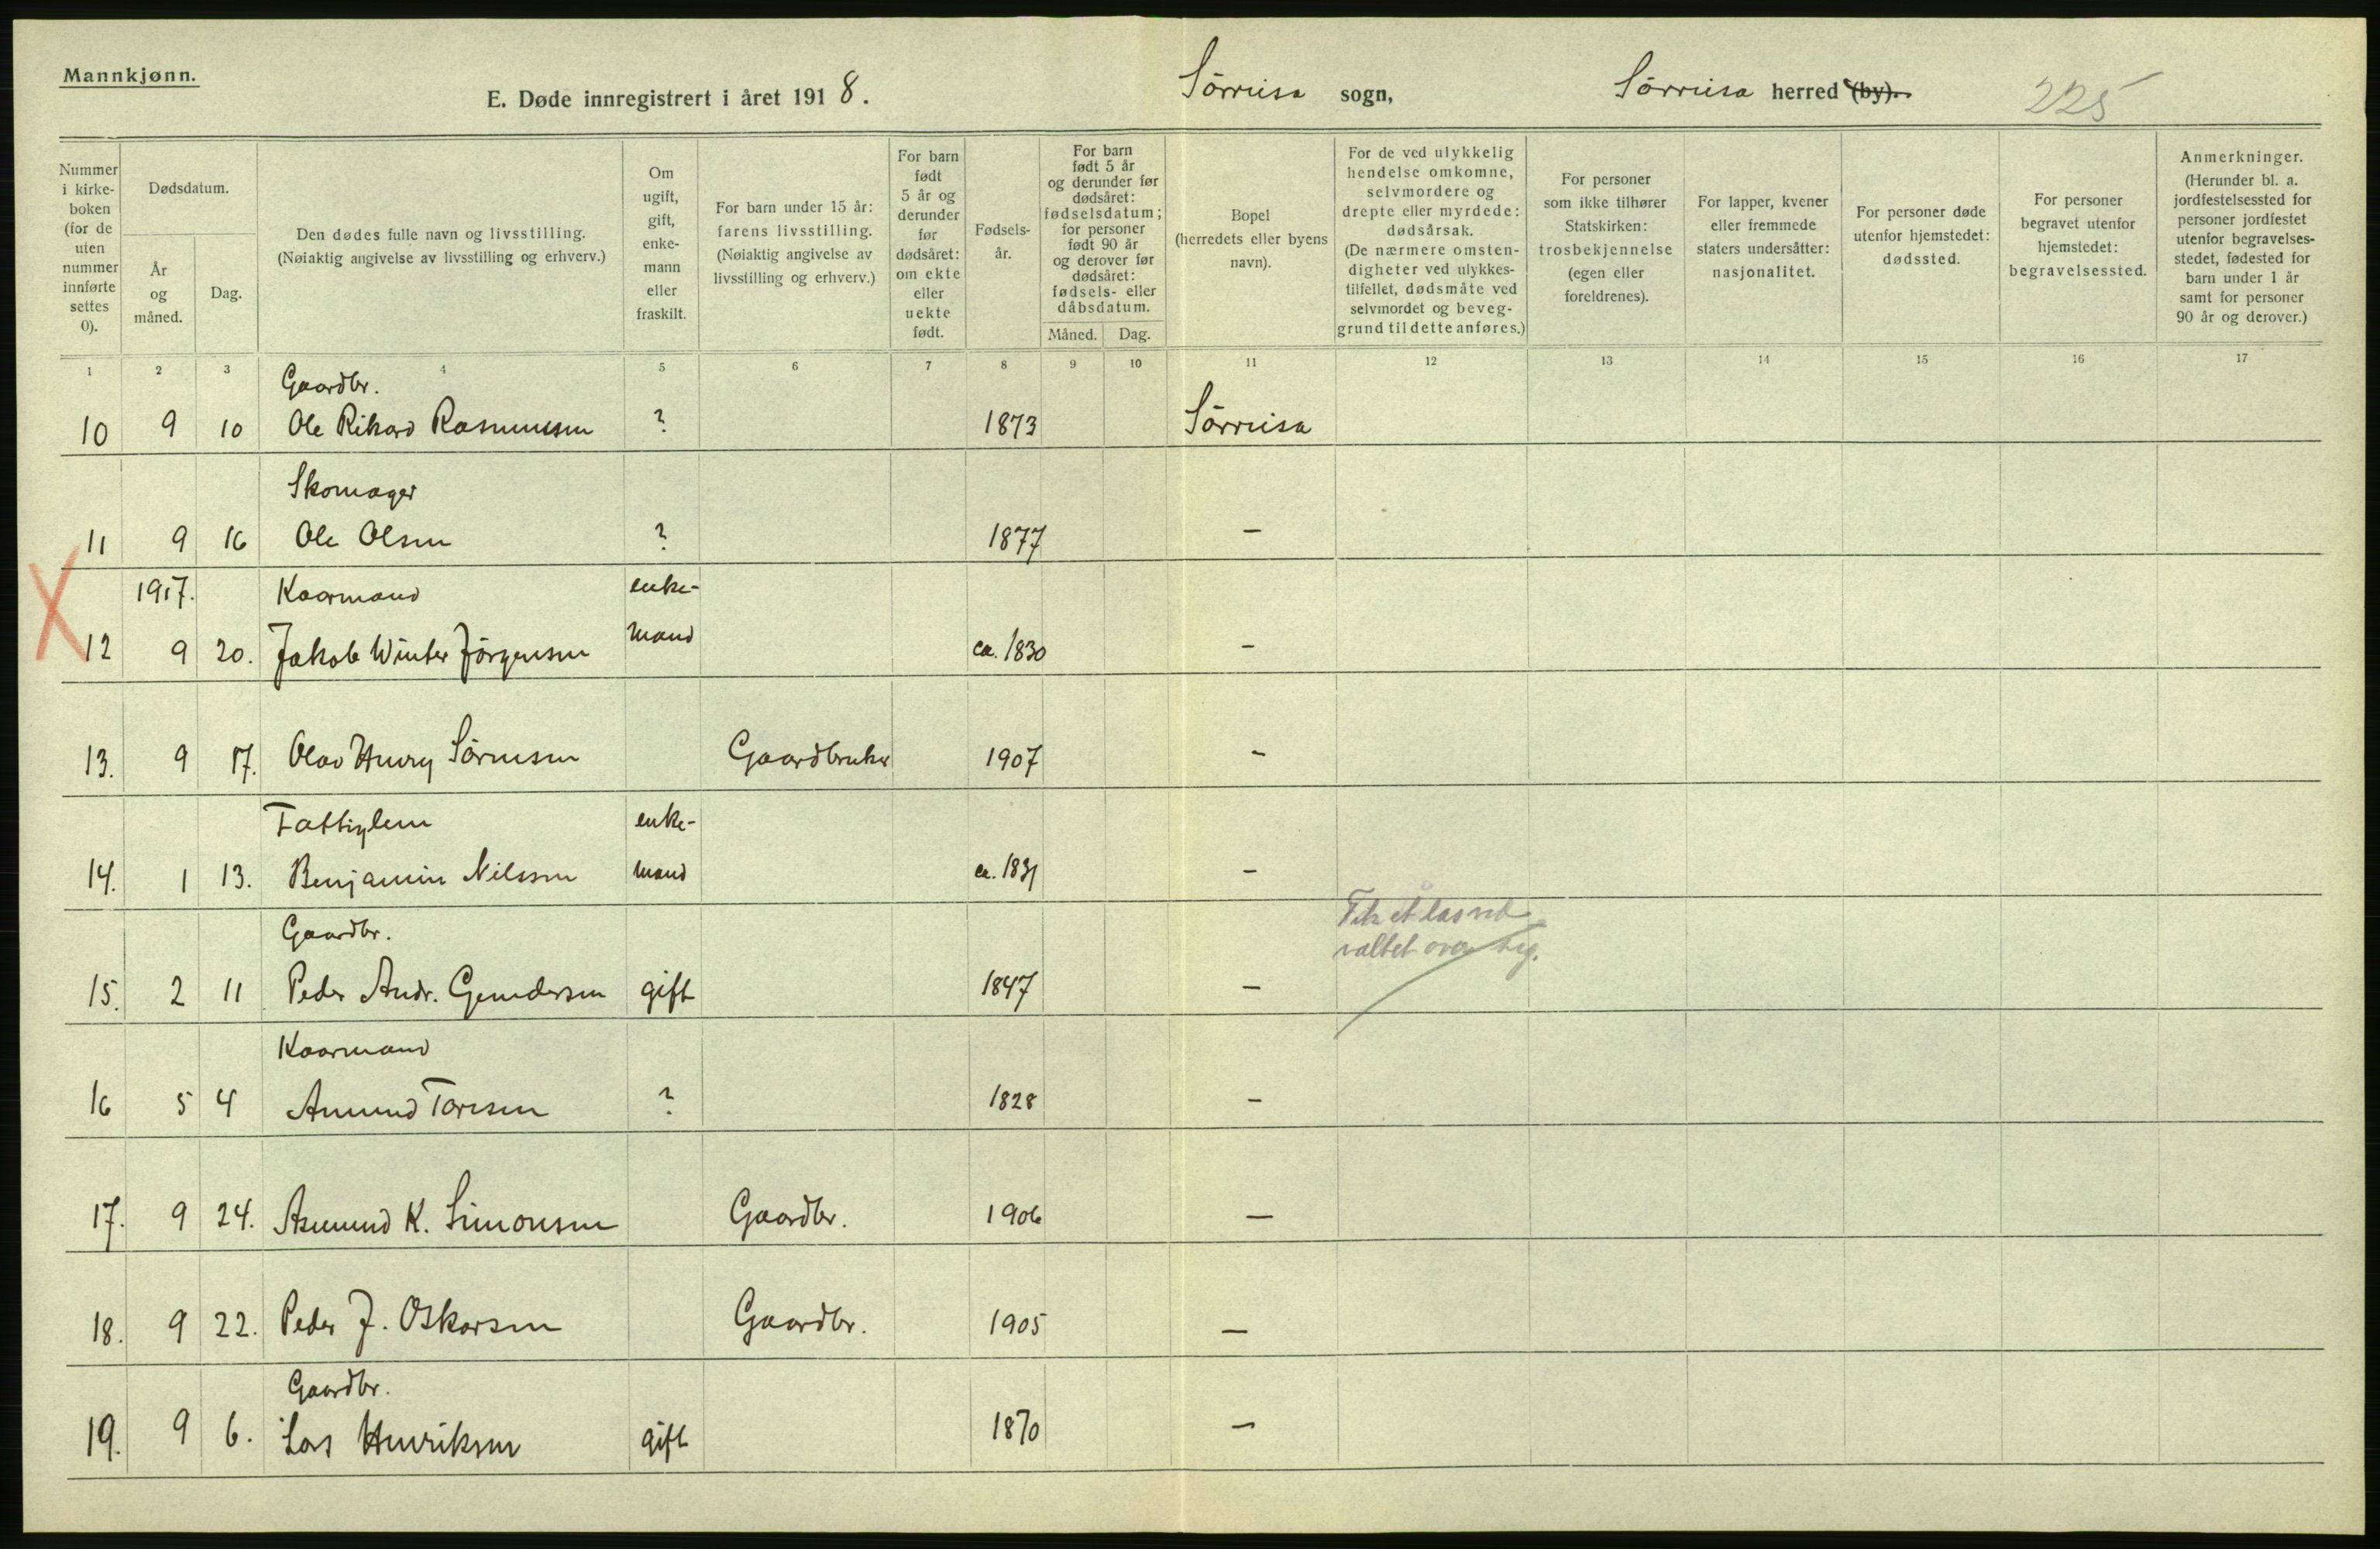 Mannkjønn.
E. Døde innregistrert i året 1918.
Sörreisa sogn,
Sörreisa herred (by).
225
Nummer i kirke-boken (for de uten nummer innførte settes 0).
Dødsdatum.
År og måned.
Dag.
Den dødes fulle navn og livsstilling.
(Nøiaktig angivelse av livsstilling og erhverv.)
Om ugift, gift, enke-mann eller fraskilt.
For barn under 15 år: farens livsstilling.
(Nøiaktig angivelse av livsstilling og erhverv.)
For barn født 5 år og derunder før dødsåret: om ekte eller uekte født.
Fødsels-år.
For barn født 5 år og derunder før dødsåret: fødselsdatum; for personer født 90 år og derover før dødsåret: fødsels- eller dåbsdatum.
Måned.
Dag.
Bopel (herredets eller byens navn).
For de ved ulykkelig hendelse omkomne, selvmordere og drepte eller myrdede: dødsårsak.
(De nærmere omsten-digheter ved ulykkes-tilfellet, dødsmåte ved selvmordet og beveg-grund til dette anføres.)
For personer som ikke tilhører Statskirken: trosbekjennelse (egen eller foreldrenes).
For lapper, kvener eller fremmede staters undersåtter: nasjonalitet.
For personer døde utenfor hjemstedet: dødssted.
For personer begravet utenfor hjemstedet: begravelsessted.
Anmerkninger.
(Herunder bl. a. jordfestelsessted for personer jordfestet utenfor begravelses-stedet, fødested for barn under 1 år samt for personer 90 år og derover.)
1 2 3 4 5 6 7 8 9 10 11 12 13 14 15 16 17
Gaardbr.
10 9 10 Ole Rikard Rasmussen ? 1873 Sörreisa
Skomager
11 9 16 Ole Olsen ? 1877 –
1917. Kaarmand enke-
12 9 20. Jakob Winter Jörgensen mand ca. 1830 –
13. 9 17. Olav Henry Sörensen Gaardbruker 1907 –
Fattiglem enke-
14. 1 13. Benjamin Nilssen mand ca. 1831 –
Gaardbr.
15. 2 11 Peder Andr. Gundersen gift 1847 –
Fik et læs ved
valtet over sig.
Kaarmand
16 5 4 Amund Toresen ? 1828 –
17. 9 24. Asmund K. Simonsen Gaardbr. 1906 –
18. 9 22. Peder J. Oskarsen Gaardbr. 1905 –
Gaardbr.
19. 9 6. Lars Henriksen gift 1870 –